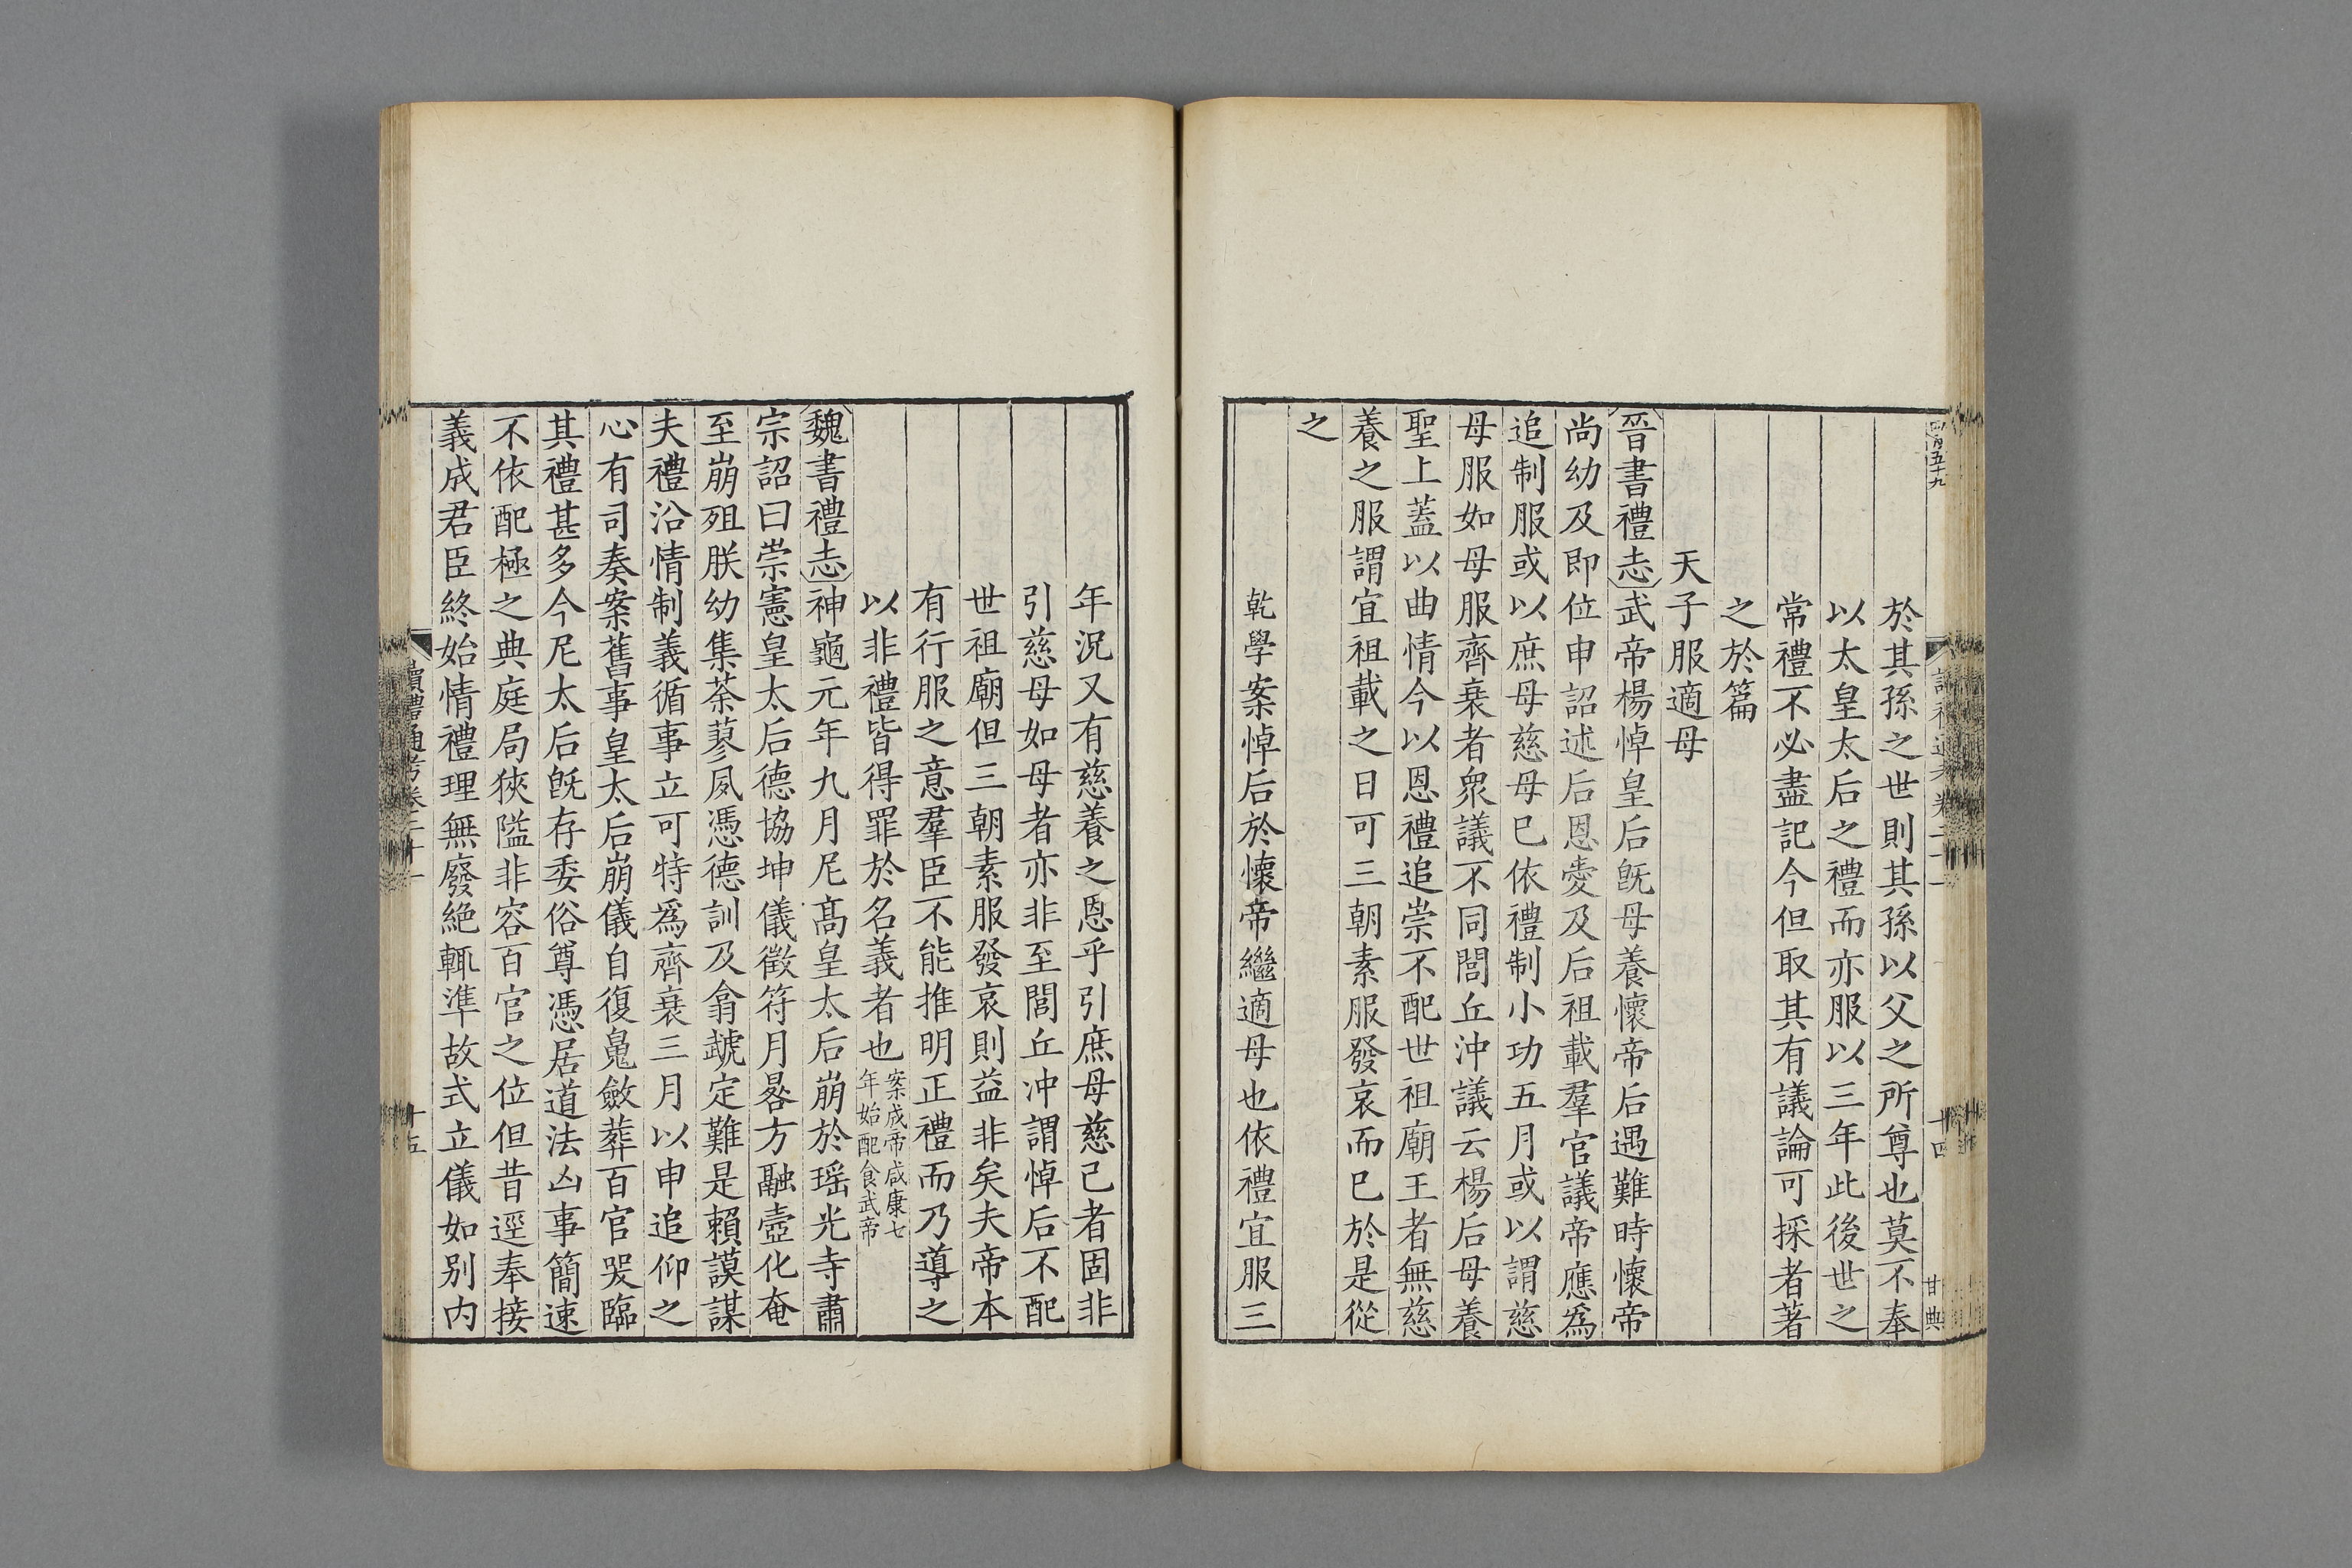 於其孫之世則其孫以父之所尊也莫不奉
以太皇太后之禮而亦服以三年此後世之
常禮不必盡記今但取其有議論可採者著
之於篇
天子服適母
晉書禮志武帝楊悼皇后旣母養懷帝后遇難時懷帝
尚幼及即位申詔述后恩愛及后祖載羣官議帝應爲
追制服或以庶母慈母已依禮制小功五月或以謂慈
母服如母服齊衰者衆議不同閭丘沖議云楊后母養
聖上蓋以曲情今以恩禮追崇不配世祖廟王者無慈
養之服謂宜祖載之日可三朝素服發哀而已於是從
之
乾學案悼后於懷帝繼適母也依禮宜服三
年況又有慈養之恩乎引庶母慈己者固非
引慈母如母者亦非至閭丘冲謂悼后不配
世祖廟但三朝素服發哀則益非矣夫帝本
有行服之意羣臣不能推明正禮而乃導之
以非禮皆得罪於名義者也案成帝咸康七
年始配食武帝
魏書禮志神龜元年九月尼高皇太后崩於瑶光寺肅
宗詔曰崇憲皇太后德協坤儀徵符月晷方融壼化奄
至崩殂朕幼集荼蓼夙憑德訓及翕虣定難是賴謨謀
夫禮沿情制義循事立可特爲齊衰三月以申追仰之
心有司奏案舊事皇太后崩儀自復魄斂葬百官哭臨
其禮甚多今尼太后旣存委俗尊憑居道法凶事簡速
不依配極之典庭局狹隘非容百官之位但昔逕奉接
義成君臣終始情禮理無廢絶輒準故式立儀如别内
續禮通考卷二十一
十五